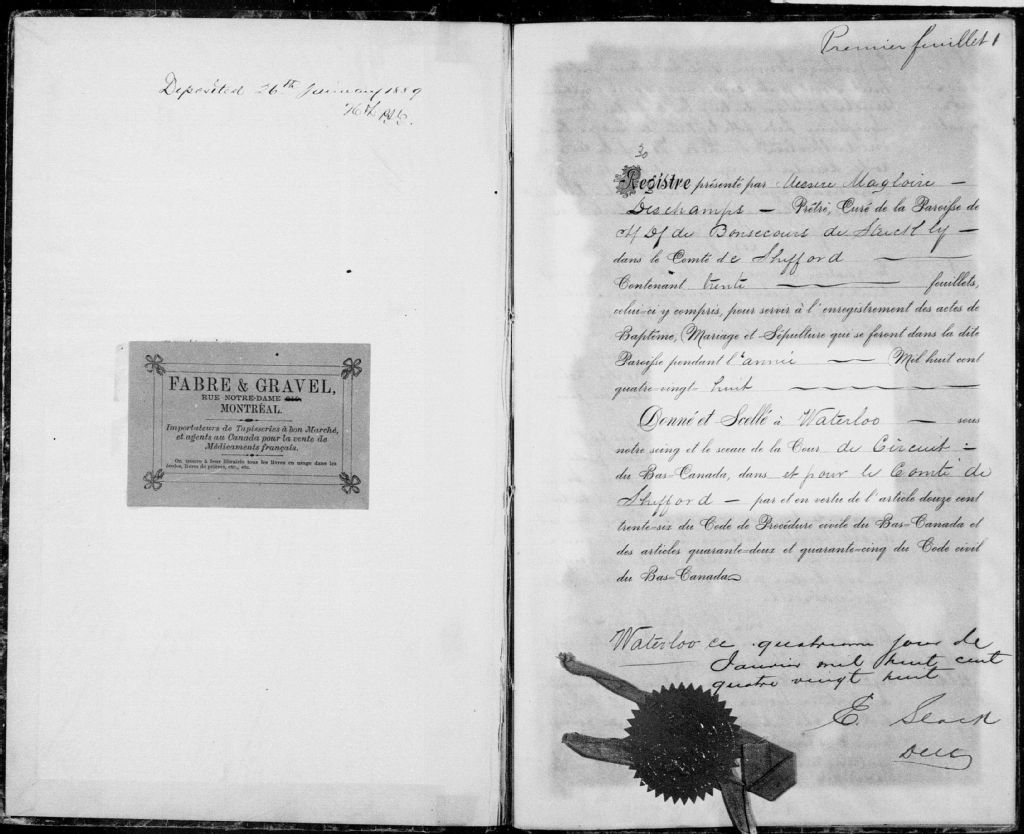 Deposited 26th January 1889
FABRE & GRAVEL,
RUE NOTRE-DAME 219.
MONTRÉAL.
Importateurs de Tapisseries à bon Marché,
et agents au Canada pour la vente de
Médicaments français.
On trouve à leur librairie tous les livres en usage dans les
écoles, livres de prières, etc., etc.
Premier feuillet 1
30
Registre présenté par Messire Magloire —
Deschamps — Prêtre, Curé de la Paroisse de
N D de Bonsecours de Stuckly —
dans le Comté de Shefford —
Contenant trente — feuillets,
celui-ci y compris, pour servir à l'enregistrement des actes de
Baptême, Mariage et Sépulture qui se feront dans la dite
Paroisse pendant l'année — Mil huit cent
quatre-vingt huit —
Donné et Scellé à Waterloo — sous
notre seing et le sceau de la Cour de Circuit —
du Bas-Canada, dans et pour le Comté de
Shefford — par et en vertu de l'article douze cent
trente-six du Code de Procédure civile du Bas-Canada et
des articles quarante-deux et quarante-cinq du Code civil
du Bas-Canada
Waterloo ce quatrieme jour de
Janvier mil huit cent
quatre vingt huit
E. Slack